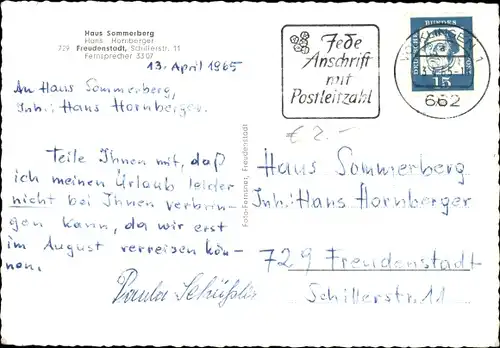 Haus Sommerberg
Hans Hornberger
729 Freudenstadt, Schillerstr. 11
Fernsprecher 3307
13. April 1965
An Haus Sommerberg,
Inh: Hans Hornberger.
Teile Ihnen mit, daß
ich meinen Urlaub leider
nicht bei Ihnen verbrin-
gen kann, da wir erst
im August verreisen kön-
nen.
Paula
Foto-Fernsner, Freudenstadt
Jede
Anschrift
mit
Postleitzahl
DEUTSCHE
BUNDES
POST
15
VÖLKLINGEN 1
662
€ 2.-
Haus Sommerberg
Inh.: Hans Hornberger
729 Freudenstadt
Schillerstr. 11